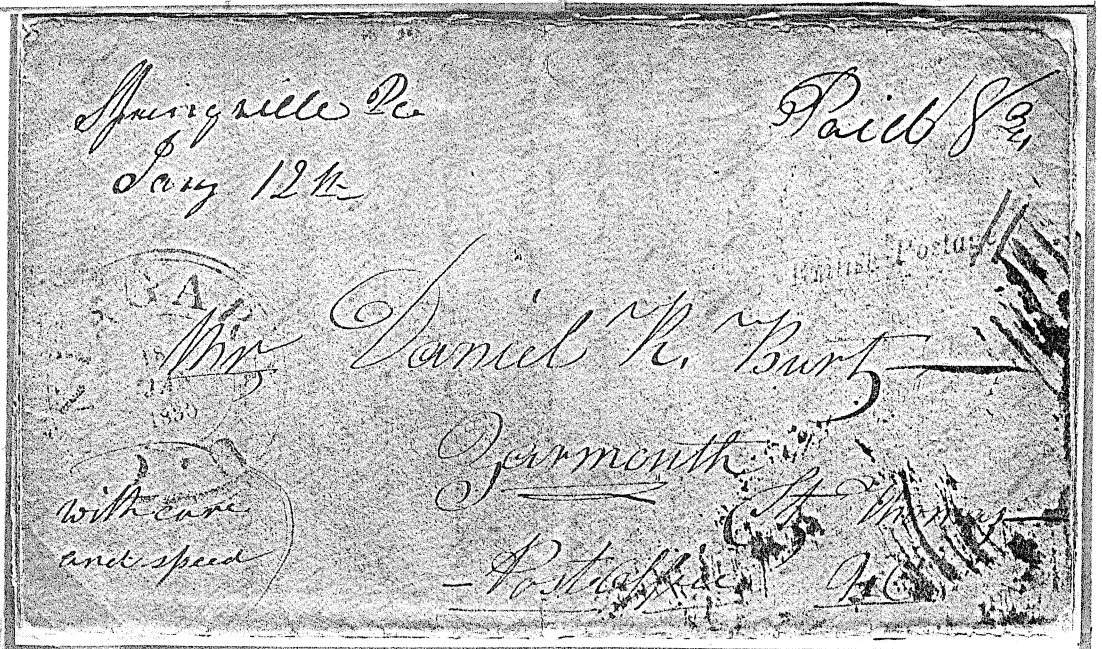 Springville Pa
Jany 12th
Paid 18 3/4
British Postage
GA
Mr Daniel K. Burt
18
JA
1830
Yarmouth
St Thomas
Postoffice U C
with care
and speed